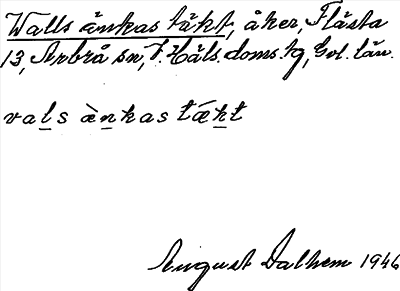 Walls änkas täkt, åker, Flästa
13, Arbrå sn, V. Häls. doms. hg, Gvl. län.
vals ànkas tǽkt
August Dalhem 1946